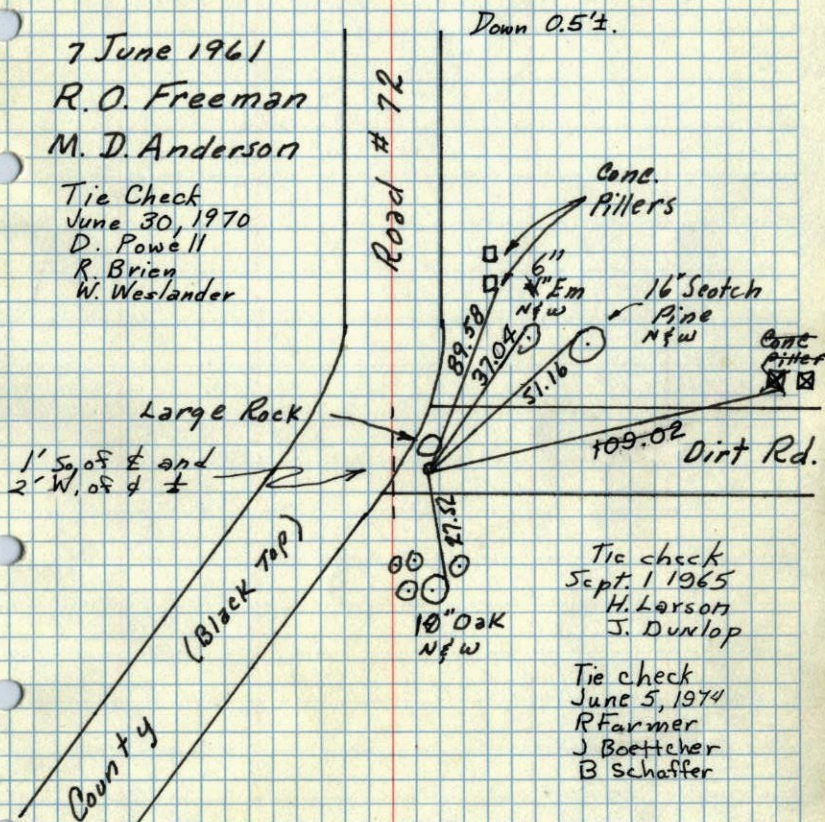 Down 0.5'±.
7 June 1961
R.O. Freeman
M. D. Anderson
Tie Check
June 30, 1970
D. Powell
R. Brien
W. Weslander
Road # 72
Conc.
Pillers
6"
"Em
N&W
16" Scotch
Pine
N&W
Conc
Piller
89.58
37.04
51.16
109.02
Dirt Rd.
Large Rock
1' So. of ¢ and
2' W. of ¢ ±
27.52
(Black Top)
County
10" Oak
N&W
Tie check
Sept. 1 1965
H. Larson
J. Dunlop
Tie check
June 5, 1974
R Farmer
J Boettcher
B Schaffer